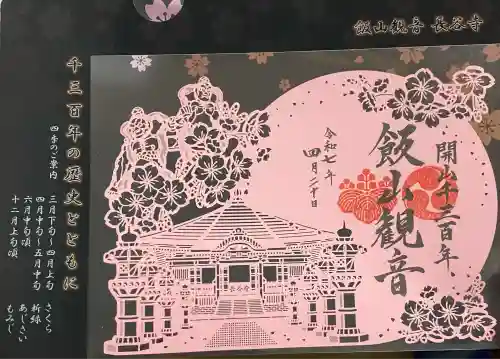 飯山観音 長谷寺
千三百年の歴史とともに
四季のご案内
三月下旬～四月上旬 さくら
四月中旬～五月中旬 新緑
六月中旬頃 あじさい
十二月上旬頃 もみじ
開山千三百年
飯山観音
令和七年
四月二十日
長谷寺